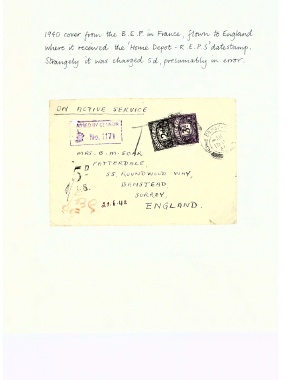 1940 cover from the B.E.F. in France, flown to England
where it received the 'Home Depot - R.E.P.S' datestamp.
Strangely it was charged 5d, presumably in error.
ON ACTIVE SERVICE
No. 1171
MRS. B. M. SOAR
PATTERDALE
5D
55 ROUNDWOOD WAY,
BANSTEAD
SURREY
ENGLAND.